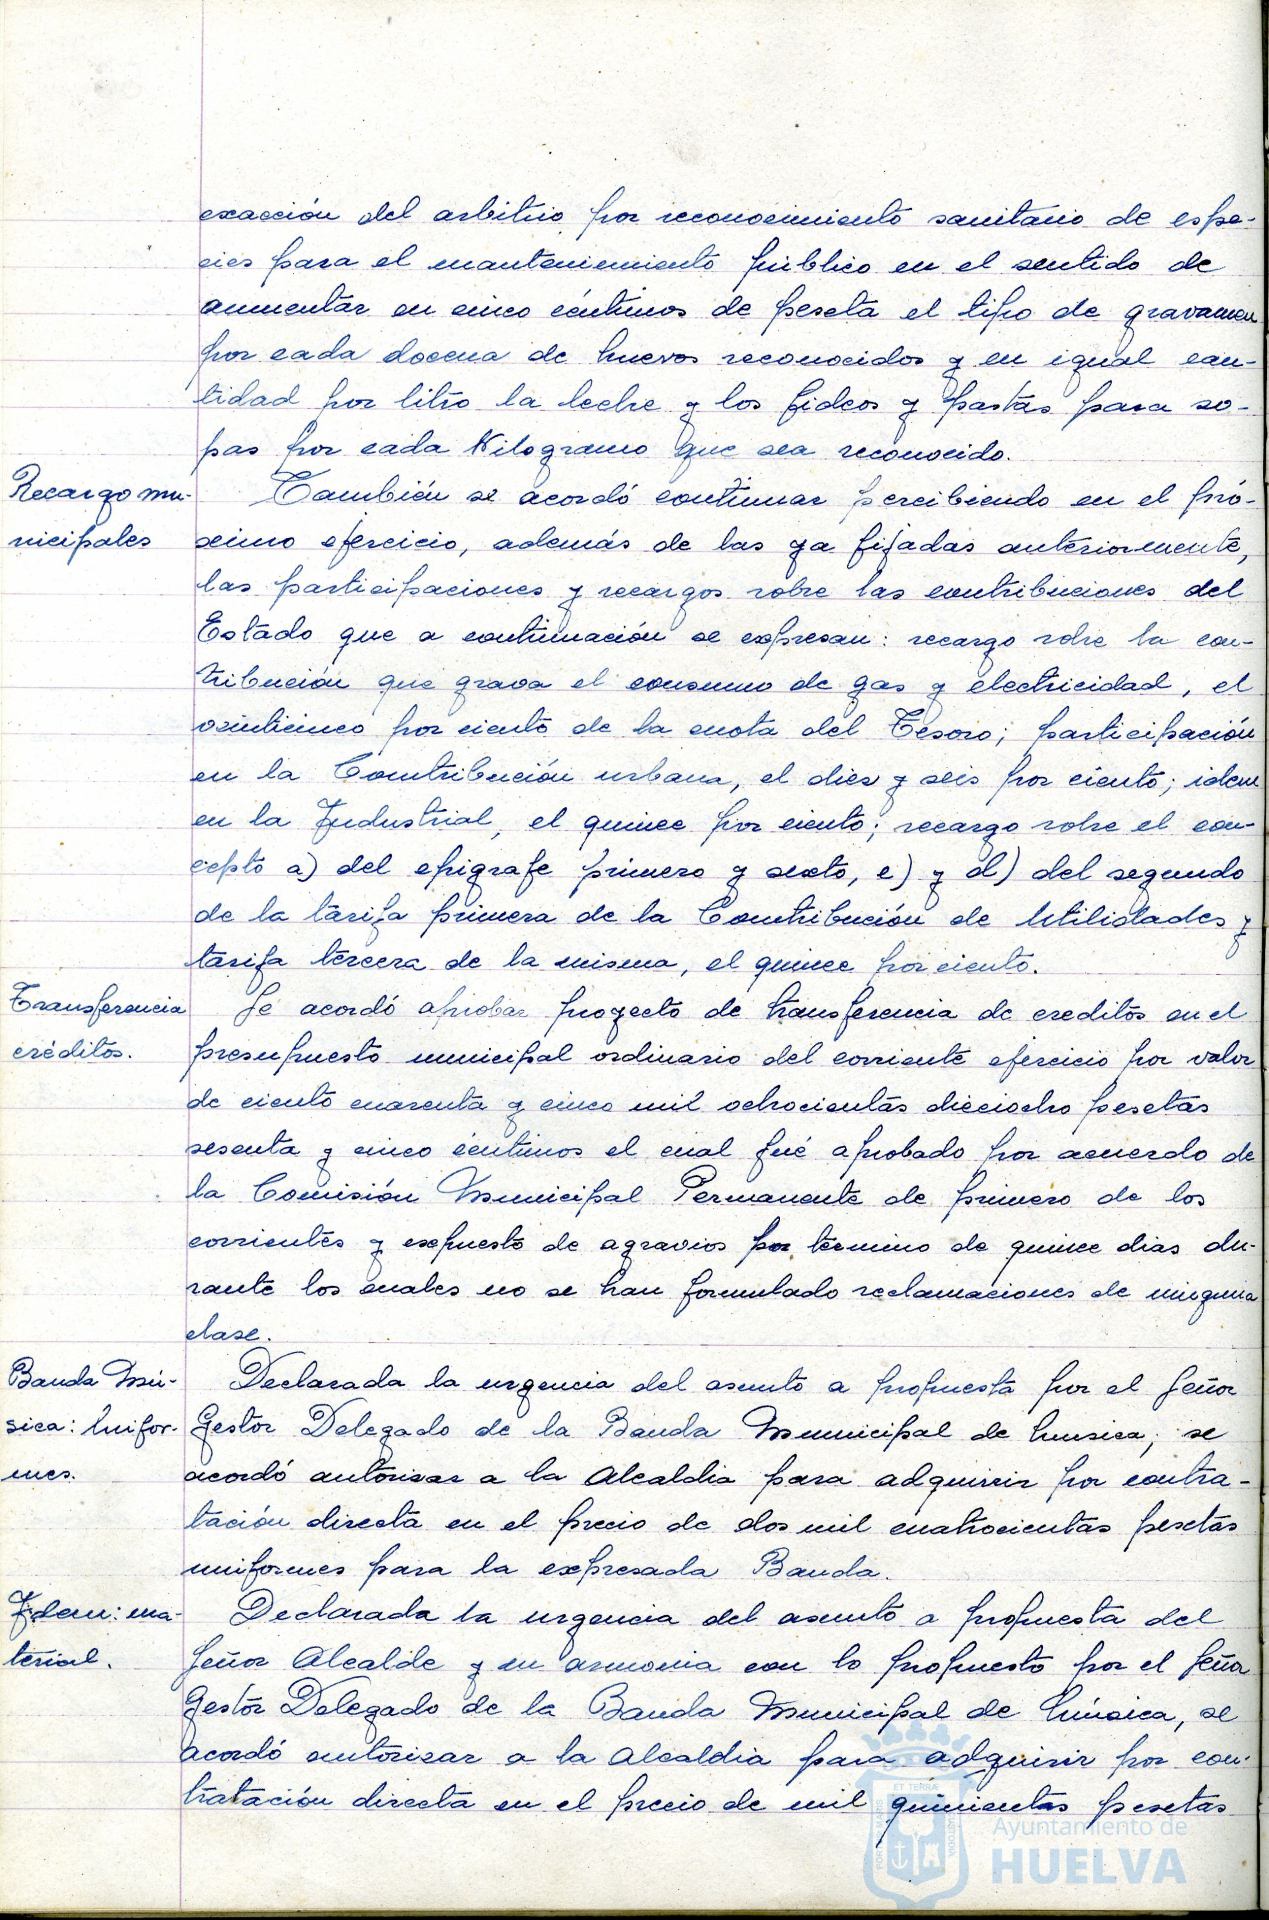 exacción del arbitrio por reconocimiento sanitario de espe-
cies para el mantenimiento público en el sentido de
aumentar en cinco céntimos de peseta el tipo de gravamen
por cada docena de huevos reconocidos y en igual can-
tidad por litro la leche y los fideos y pastas para so-
pas por cada Kilogramo que sea reconocido.
Recargo mu-
nicipales
También se acordó continuar percibiendo en el pró-
ximo ejercicio, además de las ya fijadas anteriormente,
las participaciones y recargos sobre las contribuciones del
Estado que a continuación se expresan: recargo sobre la con-
tribución que grava el consumo de gas y electricidad, el
veinticinco por ciento de la cuota del Tesoro; participación
en la Contribución urbana, el diez y seis por ciento; idem
en la Industrial, el quince por ciento; recargo sobre el con-
cepto a) del epigrafe primero y sexto, c) y d) del segundo
de la tarifa primera de la Contribución de Utilidades y
tarifa tercera de la misma, el quince por ciento.
Transferencia
créditos.
Se acordó aprobar proyecto de transferencia de creditos en el
presupuesto municipal ordinario del corriente ejercicio por valor
de ciento cuarenta y cinco mil ochocientas dieciocho pesetas
sesenta y cinco céntimos el cual fué aprobado por acuerdo de
la Comisión Municipal Permanente de primero de los
corrientes y expuesto de agravios por término de quince dias du-
rante los cuales no se han formulado reclamaciones de ninguna
clase.
Banda Mú-
sica: Unifor-
mes.
Declarada la urgencia del asunto a propuesta por el Señor
Gestor Delegado de la Banda Municipal de Musica, se
acordó autorizar a la Alcaldia para adquirir por contra-
tación directa en el precio de dos mil cuatrocientas pesetas
uniformes para la expresada Banda.
Idem: ma-
terial.
Declarada la urgencia del asunto a propuesta del
Señor Alcalde y en armonia con lo propuesto por el Señor
Gestor Delegado de la Banda Municipal de Música, se
acordó autorizar a la Alcaldia para adquirir por con-
tratación directa en el precio de mil quinientas pesetas
ET TERRÆ
Ayuntamiento de
HUELVA